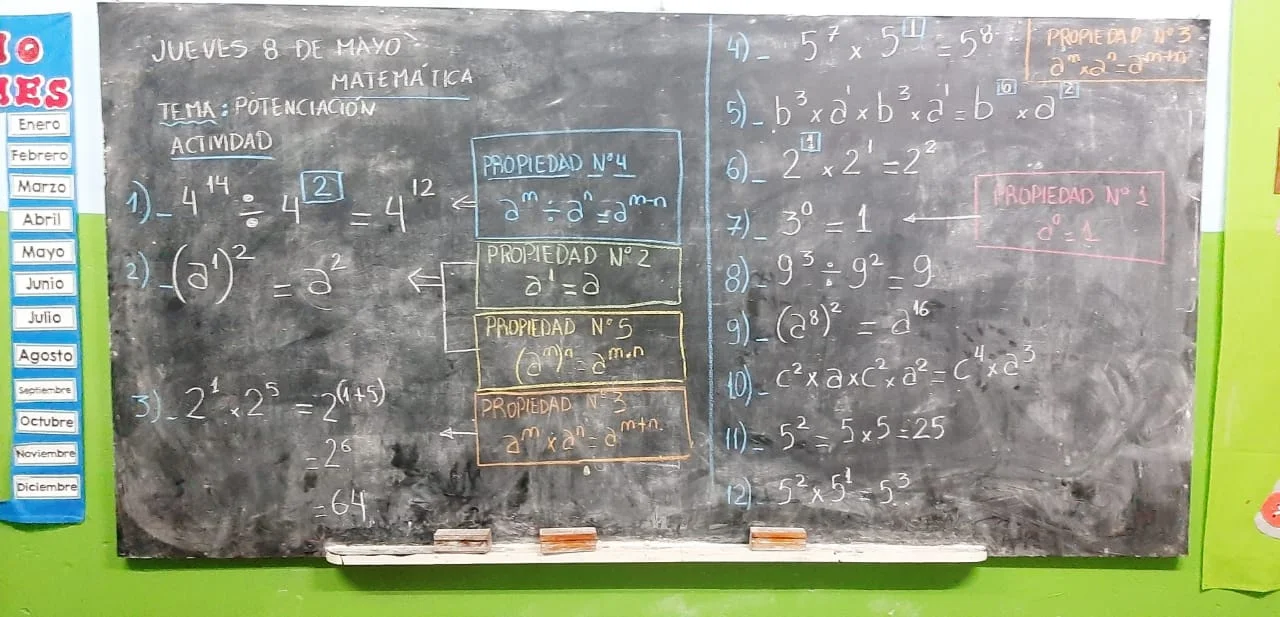 IO
MES
Enero
Febrero
Marzo
Abril
Mayo
Junio
Julio
Agosto
Septiembre
Octubre
Noviembre
Diciembre
JUEVES 8 DE MAYO
MATEMÁTICA
TEMA: POTENCIACIÓN
ACTIVIDAD
1)_ 4¹⁴ ÷ 4² = 4¹²
2)_ (a¹)² = a²
3)_ 2¹ × 2⁵ = 2⁽¹⁺⁵⁾
= 2⁶
= 64
PROPIEDAD N°4
aᵐ ÷ aⁿ = aᵐ⁻ⁿ
PROPIEDAD N°2
a¹ = a
PROPIEDAD N°5
(aᵐ)ⁿ = aᵐ·ⁿ
PROPIEDAD N°3
aᵐ × aⁿ = aᵐ⁺ⁿ
4)_ 5⁷ × 5¹ = 5⁸
PROPIEDAD N°3
aᵐ × aⁿ = aᵐ⁺ⁿ
5)_ b³ × a¹ × b³ × a¹ = b⁶ × a²
6)_ 2¹ × 2¹ = 2²
7)_ 3⁰ = 1
PROPIEDAD N°1
a⁰ = 1
8)_ 9³ ÷ 9² = 9
9)_ (a⁸)² = a¹⁶
10)_ c² × a × c² × a² = c⁴ × a³
11)_ 5² = 5 × 5 = 25
12)_ 5² × 5¹ = 5³